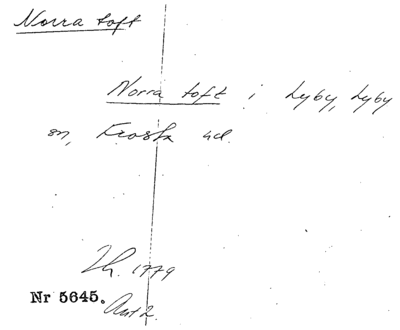 Norra toft
Norra toft i Lyby, Lyby
sn, Frosta hd.
Lh. 1779
Nr 5645.
Akt 2.